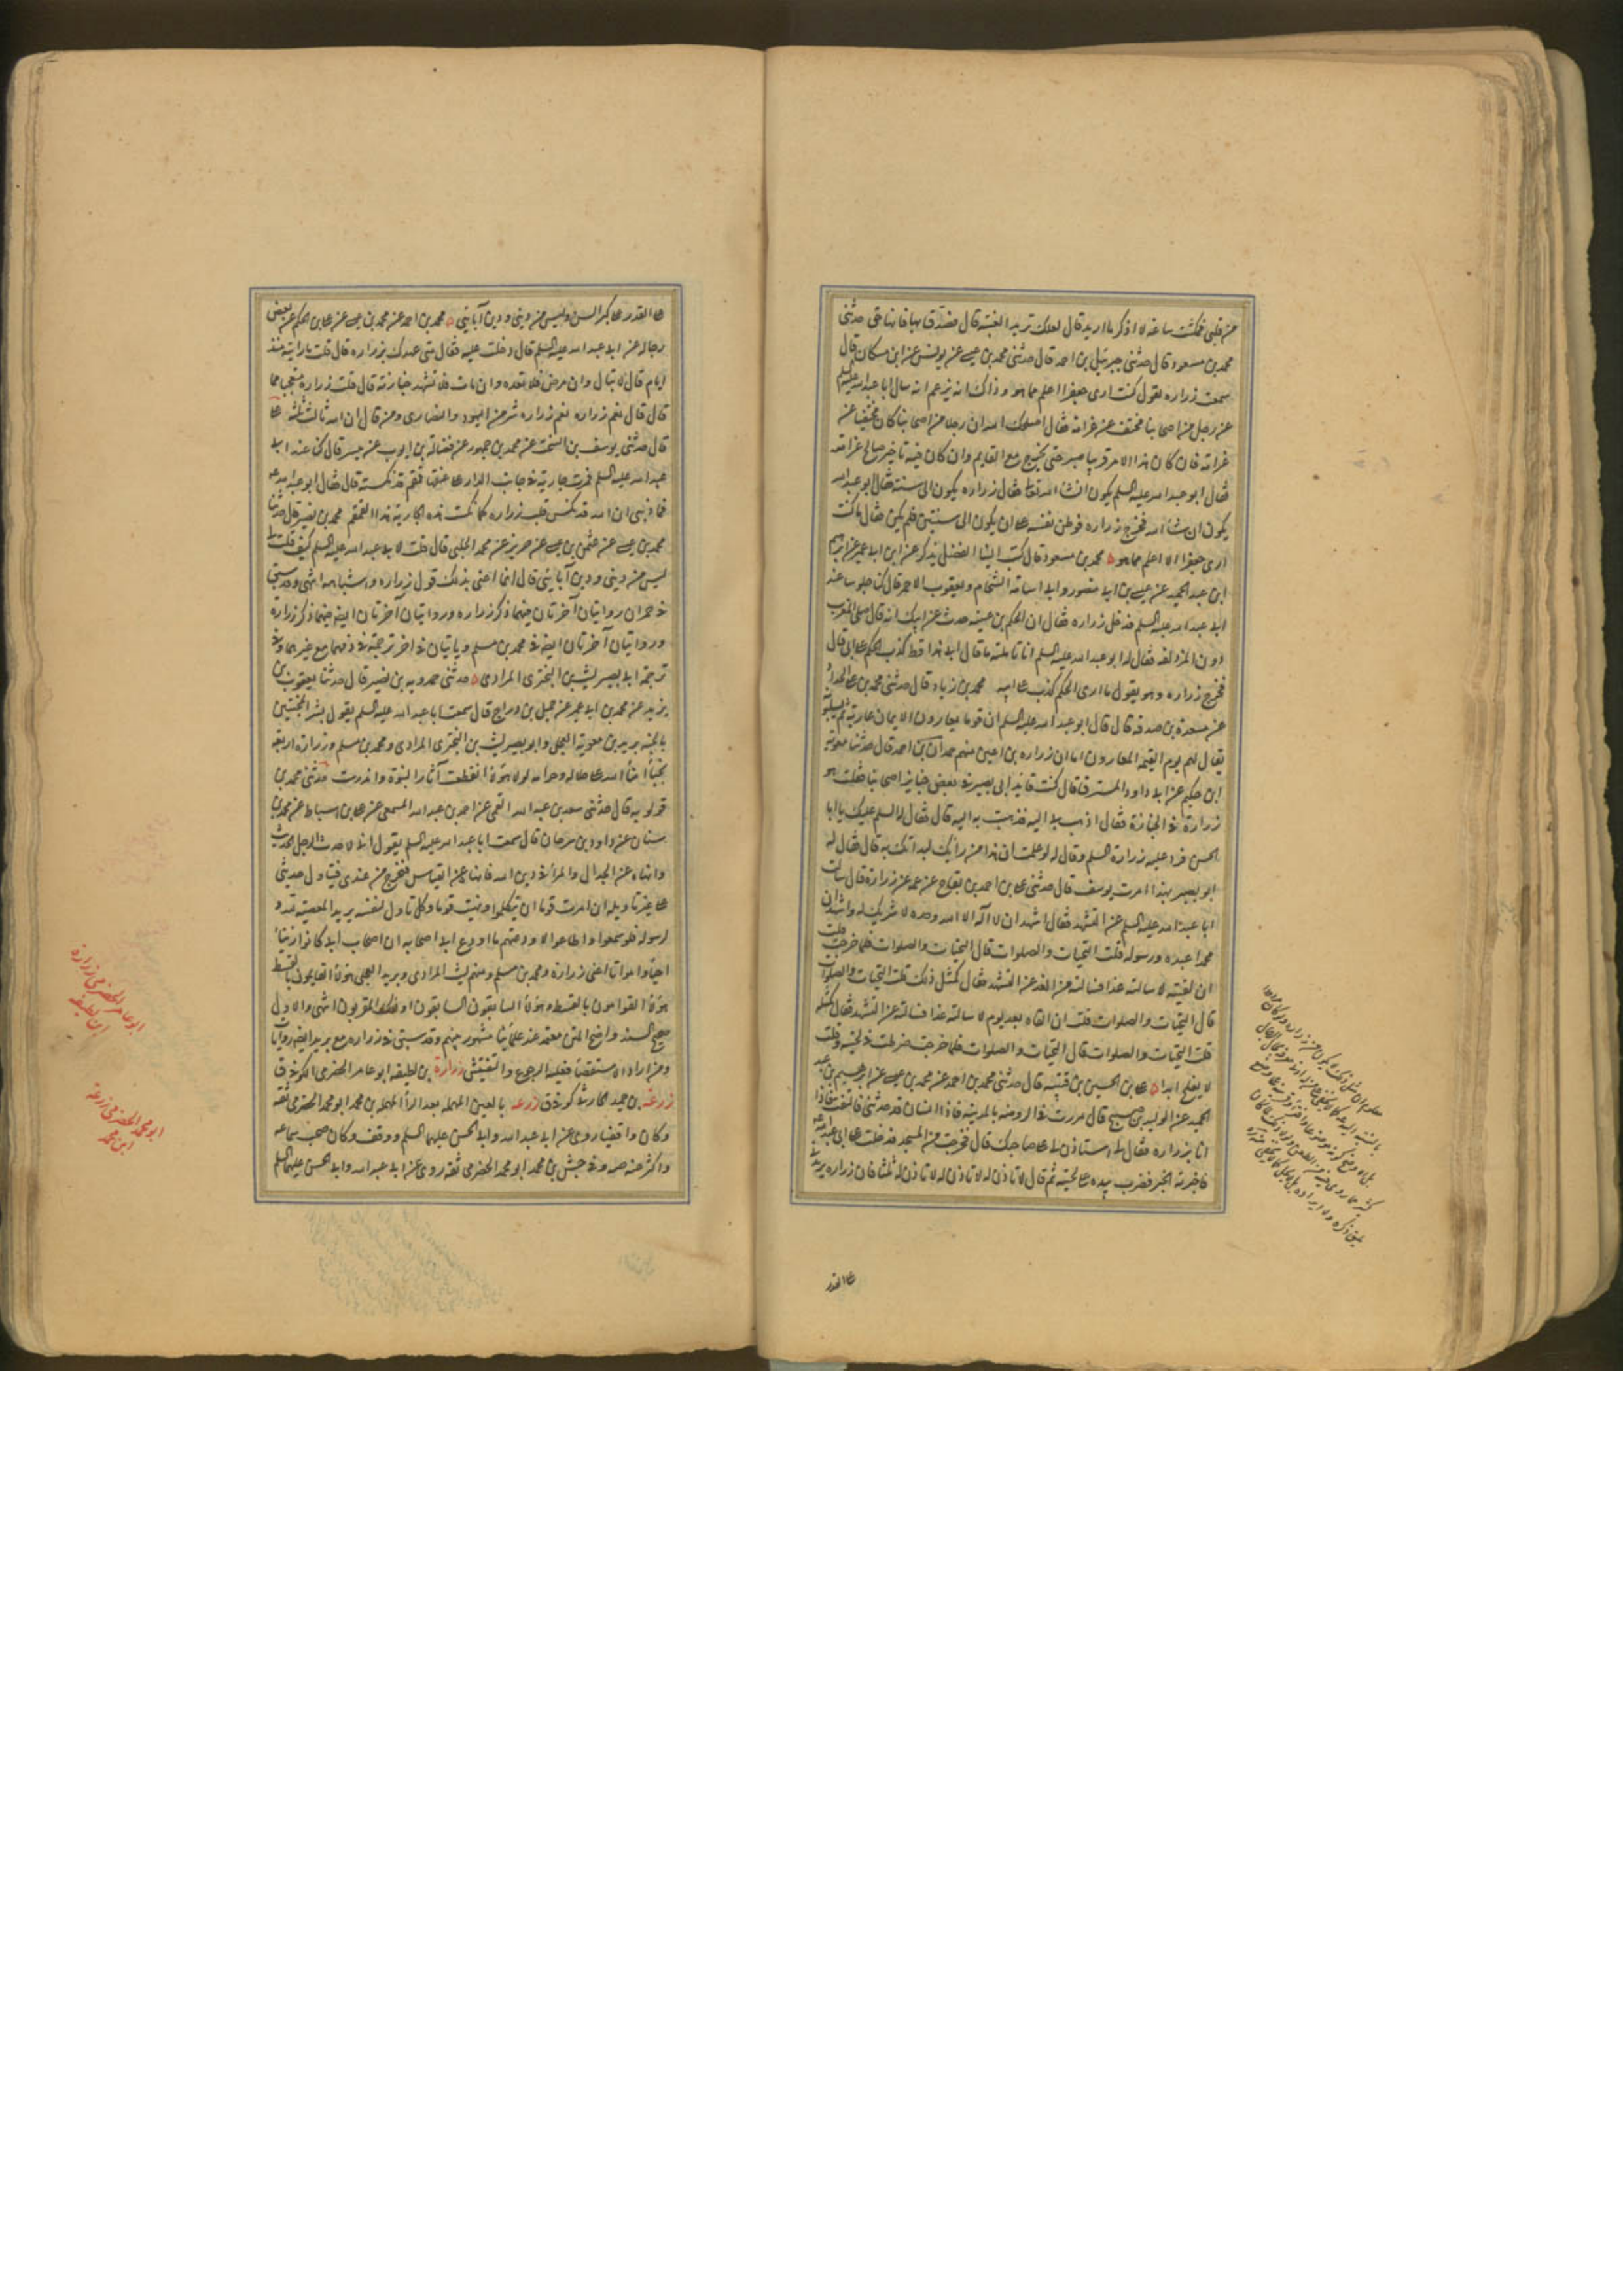 من قلبي فمكثت ساعة لا اذكر ما اريد قال لعلك تريد الغيبة قال فصدق بها فانها حق حدثني
محمد بن مسعود قال حدثني جبرئيل بن احمد قال حدثني محمد بن عيسى عن يونس عن ابن مسكان قال
سمعت زراره يقول كنت ارى جعفرا اعلم مما هو وذاك انه يزعم انه سال ابا عبد الله عليه السلم
عن رجل من اصحابنا مختف من غرامه فقال اصلحك الله ان رجلا من اصحابنا كان مختفيا من
غرامه فان كان هذا الامر قريبا صبر حتى يخرج مع القايم وان كان فيه تاخير صالح غرامه
فقال ابو عبد الله عليه السلم يكون انشا الله تعالى فقال زراره يكون الى سنة فقال ابو عبد الله
يكون ان شا الله فخرج زراره فوطن نفسه على ان يكون الى سنتين فلم يكن فقال ما كنت
ارى جعفرا الا اعلم مما هو محمد بن مسعود قال كتب الينا الفضل يذكر عن ابن ابي عمير عن ابرهيم
ابن عبد الحميد عن عيسى بن ابي منصور وابي اسامة الشحام ويعقوب الاحمر قال كنا جلوسا عند
ابي عبد الله عليه السلم فدخل زراره فقال ان الحكم بن عيينه حدث عن ابيك انه قال صل المغرب
دون المزدلفه فقال له ابو عبد الله عليه السلم انا تاملته ما قال ابي هذا قط كذب الحكم على ابي قال
فخرج زراره وهو يقول ما ارى الحكم كذب على ابيه محمد بن زياد قال حدثني محمد بن
عن مسعدة بن صدقه قال قال ابو عبد الله عليه السلم ان قوما يعارون الايمان عارية ثم يسلبونه
يقال لهم يوم القيمه المعارون اما ان زراره بن اعين منهم حمدان بن احمد قال حدثنا معويه
ابن حكيم عن ابي داود المسترق قال كنت قايد ابي بصير في بعض جنايز اصحابنا فقلت هو
زراره في الجنازة فقال اذهب بي اليه فذهبت به اليه قال فقال له السلم عليك يا ابا
الحسن فرد عليه زراره السلم وقال له لو علمت ان هذا من رايك لبداتك به قال فقال له
ابو بصير بهذا امرت يوسف قال حدثني علي بن احمد بن بقاح عن عمه عن زراره قال سالت
ابا عبد الله عليه السلم عن التشهد فقال اشهد ان لا اله الا الله وحده لا شريك له واشهد ان
محمدا عبده ورسوله قلت التحيات والصلوات قال التحيات والصلوات فلما خرجت قلت
ان لقيته لا سالنه غدا فسالته من الغد عن التشهد فقال كمثل ذلك قلت التحيات والصلوات
قال التحيات والصلوات قلت ان القاه بعد يوم لا سالنه غدا فسالته عن التشهد فقال كمثله
قلت التحيات والصلوات قال التحيات والصلوات فلما خرجت ضرطت في لحيته وقلت
لا يفلح ابدا علي بن الحسين بن قتيبه قال حدثني محمد بن احمد عن محمد بن عيسى عن ابرهيم بن عبد
الحميد عن الوليد بن صبيح قال مررت في الروضه بالمدينه فاذا انسان قد جذبني فالتفت فاذا
انا بزراره فقال لي استاذن لي على صاحبك قال فخرجت من المسجد فدخلت على ابي عبد الله
فاخبرته الخبر فضرب بيده على لحيته ثم قال لا تاذن له لا تاذن له لا تاذن له ثلثا فان زراره يريدني
على القدر
على القدر على كبر السن وليس من ديني ودين آبايي محمد بن احمد عن محمد بن عيسى عن علي بن الحكم عن بعض
رجاله عن ابي عبد الله عليه السلم قال دخلت عليه فقال متى عهدك بزراره قال قلت ما رايته منذ
ايام قال لا تبال وان مرض فلا تعده وان مات فلا تشهد جنازته قال قلت زراره متعجبا مما
قال قال نعم زراره نعم زراره شر من اليهود والنصارى ومن قال ان الله ثالث ثلثه علي
قال حدثني يوسف بن السخت عن محمد بن جمهور عن فضاله بن ايوب عن ميسر قال كنا عند ابي
عبد الله عليه السلم فمرت جارية في جانب الدار على عنقها قمقم قد نكسته قال فقال ابو عبد الله
فما ذنبي ان الله قد نكس قلب زراره كما نكست هذه الجارية هذا القمقم محمد بن نصير قال حدثنا
محمد بن عيسى عن عثمن بن عيسى عن حريز عن محمد الحلبي قال قلت لابي عبد الله عليه السلم كيف قلت لي
ليس من ديني ودين آبايي قال انما اعني بذلك قول زراره واشباهه انتهى وقد سبق
في حمران روايتان آخرتان فيهما ذكر زراره وروايتان آخرتان ايضا فيهما ذكر زرارة
وروايتان آخرتان ايضا في محمد بن مسلم وياتيان في اخر ترجمته في ذمهما مع غيرهما وفي
ترجمة ابي بصير ليث بن البختري المرادي حدثني حمدويه بن نصير قال حدثنا يعقوب بن
يزيد عن محمد بن ابي عمير عن جميل بن دراج قال سمعت ابا عبد الله عليه السلم يقول بشر المخبتين
بالجنه بريد بن معويه العجلي وابو بصير ليث بن البختري المرادي ومحمد بن مسلم وزراره اربعه
نجبآ امنآ الله على حلاله وحرامه لولا هؤلا انقطعت آثار النبوة واندرست حدثني محمد بن
قولويه قال حدثني سعد بن عبد الله القمي عن احمد بن عبد الله المسمعي عن علي بن اسباط عن محمد بن
سنان عن داود بن سرحان قال سمعت ابا عبد الله عليه السلم يقول اني لاحدث الرجل بحديث
وانهاه عن الجدال والمرآ في دين الله فانهاه عن القياس فيخرج من عندي فيتاول حديثي
على غير تاويله ان امرت قوما ان يتكلموا ونهيت قوما وكل تاول لنفسه يريد المعصيه لله و
لرسوله فلو سمعوا واطاعوا لاودعتهم ما اودع ابي اصحابه ان اصحاب ابي كانوا زينا
احيآ وامواتا اعني زراره ومحمد بن مسلم ومنهم ليث المرادي وبريد العجلي هؤلا القايمون بالقسط
هؤلا القوامون بالقسط وهؤلا السابقون السابقون اولئك المقربون انتهى والاول
صحيح السند واضح المتن معتمد عند علمآينا مشهور بينهم وقد سبق في زراره مع بريد ايضا روايات
ومن اراد الاستقصآ فعليه الرجوع والتفتيش زرارة بن لطيفه ابو عامر الحضرمي الكوفي ق
زرعه بن حميد الحارثي كوفي ق زرعه بالعين المهمله بعد الرآ المهمله بن محمد ابو محمد الحضرمي ثقه
وكان واقفيا روى عن ابي عبد الله وابي الحسن عليهما السلم ووقف وكان صحب سماعه
واكثر عنه صه وفي جش بن محمد ابو محمد الحضرمي ثقه روى عن ابي عبد الله وابي الحسن عليهما السلم
ابو عامر الحضرمي زراره
ابن لطيفه
ابو محمد الحضرمي زرعه
ابن محمد